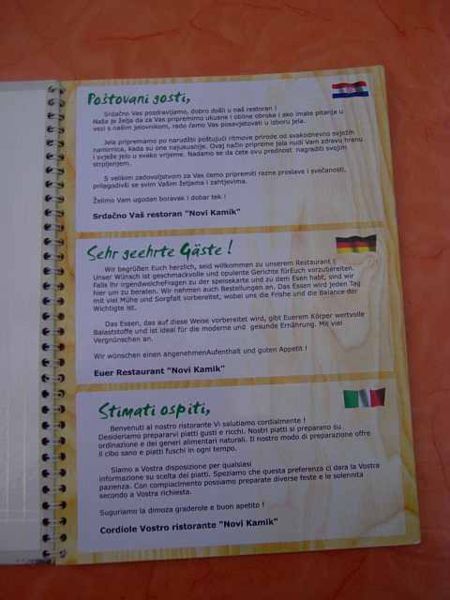 Poštovani gosti,
Srdačno Vas pozdravljamo, dobro došli u naš restoran !
Naša je želja da za Vas pripremimo ukusne i obilne obroke i ako imate pitanja u
vezi s našim jelovnikom, rado ćemo Vas posavjetovati u izboru jela.
Jela pripremamo po narudžbi poštujući ritmove prirode od svakodnevno svježih
namirnica, kada su one najukusnije. Ovaj način pripreme jela nudi Vam zdravu hranu
i svježe jelo u svako vrijeme. Nadamo se da ćete ovu prednost nagraditi svojim
strpljenjem.
S velikim zadovoljstvom za Vas ćemo pripremiti razne proslave i svečanosti,
prilagodivši se svim Vašim željama i zahtjevima.
Želimo Vam ugodan boravak i dobar tek !
Srdačno Vaš restoran "Novi Kamik"
Sehr geehrte Gäste !
Wir begrüßen Euch herzlich, seid willkommen zu unserem Restaurant !
Unser Wünsch ist geschmackvolle und opulente Gerichte fürEuch vorzubereiten.
Falls Ihr irgendwelcheFragen zu der speisekarte und zu dem Esen habt, sind wir
hier um zu beraten. Wir nehmen auch Bestellungen an. Das Essen wird jeden Tag
mit viel Mühe und Sorgfalt vorbereitet, wobei uns die Frishe und die Balance der
Wichtigte ist.
Das Essen, das auf diese Weise vorbereitet wird, gibt Euerem Körper wertvolle
Balaststoffe und ist ideal für die moderne und gesunde Ernährung. Mit viel
Vergnürschen an.
Wir wünschen einen angenehmenAufenthalt und guten Appetit !
Euer Restaurant "Novi Kamik"
Stimati ospiti,
Benvenuti al nostro ristorante Vi salutiamo cordialmente !
Desideriamo prepararvi piatti gusti e ricchi. Nostri piatti si preparano su
ordinazione e dei generi alimentari naturali. Il nostro modo di preparazione offre
il cibo sano e piatti fuschi in ogni tempo.
Siamo a Vostra disposizione per qualsiasi
informazione su scelta dei piatti. Speziamo che questa preferenza ci dara la Vostra
pazienza. Con compiacimento possiamo preparate diverse feste e le solennita
secondo a Vostra richiesta.
Suguriamo la dimoza graderole e buon apetito !
Cordiole Vostro ristorante "Novi Kamik"